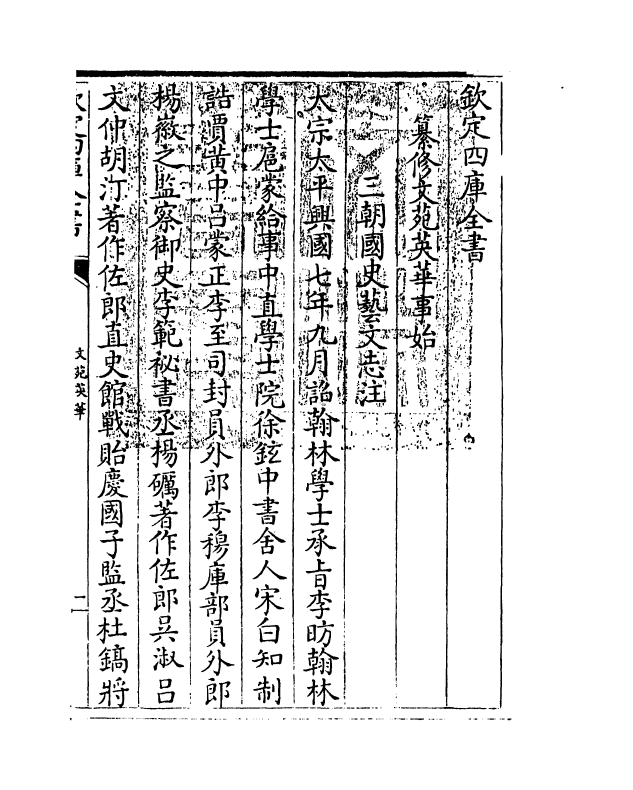 欽定四庫全書
纂修文苑英華事始
三朝國史藝文志注
太宗太平興國七年九月詔翰林學士承旨李昉翰林
學士扈蒙給事中直學士院徐鉉中書舍人宋白知制
誥賈黃中呂蒙正李至司封員外郎李穆庫部員外郎
楊徽之監察御史李範祕書丞楊礪著作佐郎吳淑呂
文仲胡汀著作佐郎直史館戰貽慶國子監丞杜鎬將
欽定四庫全書
文苑英華
二